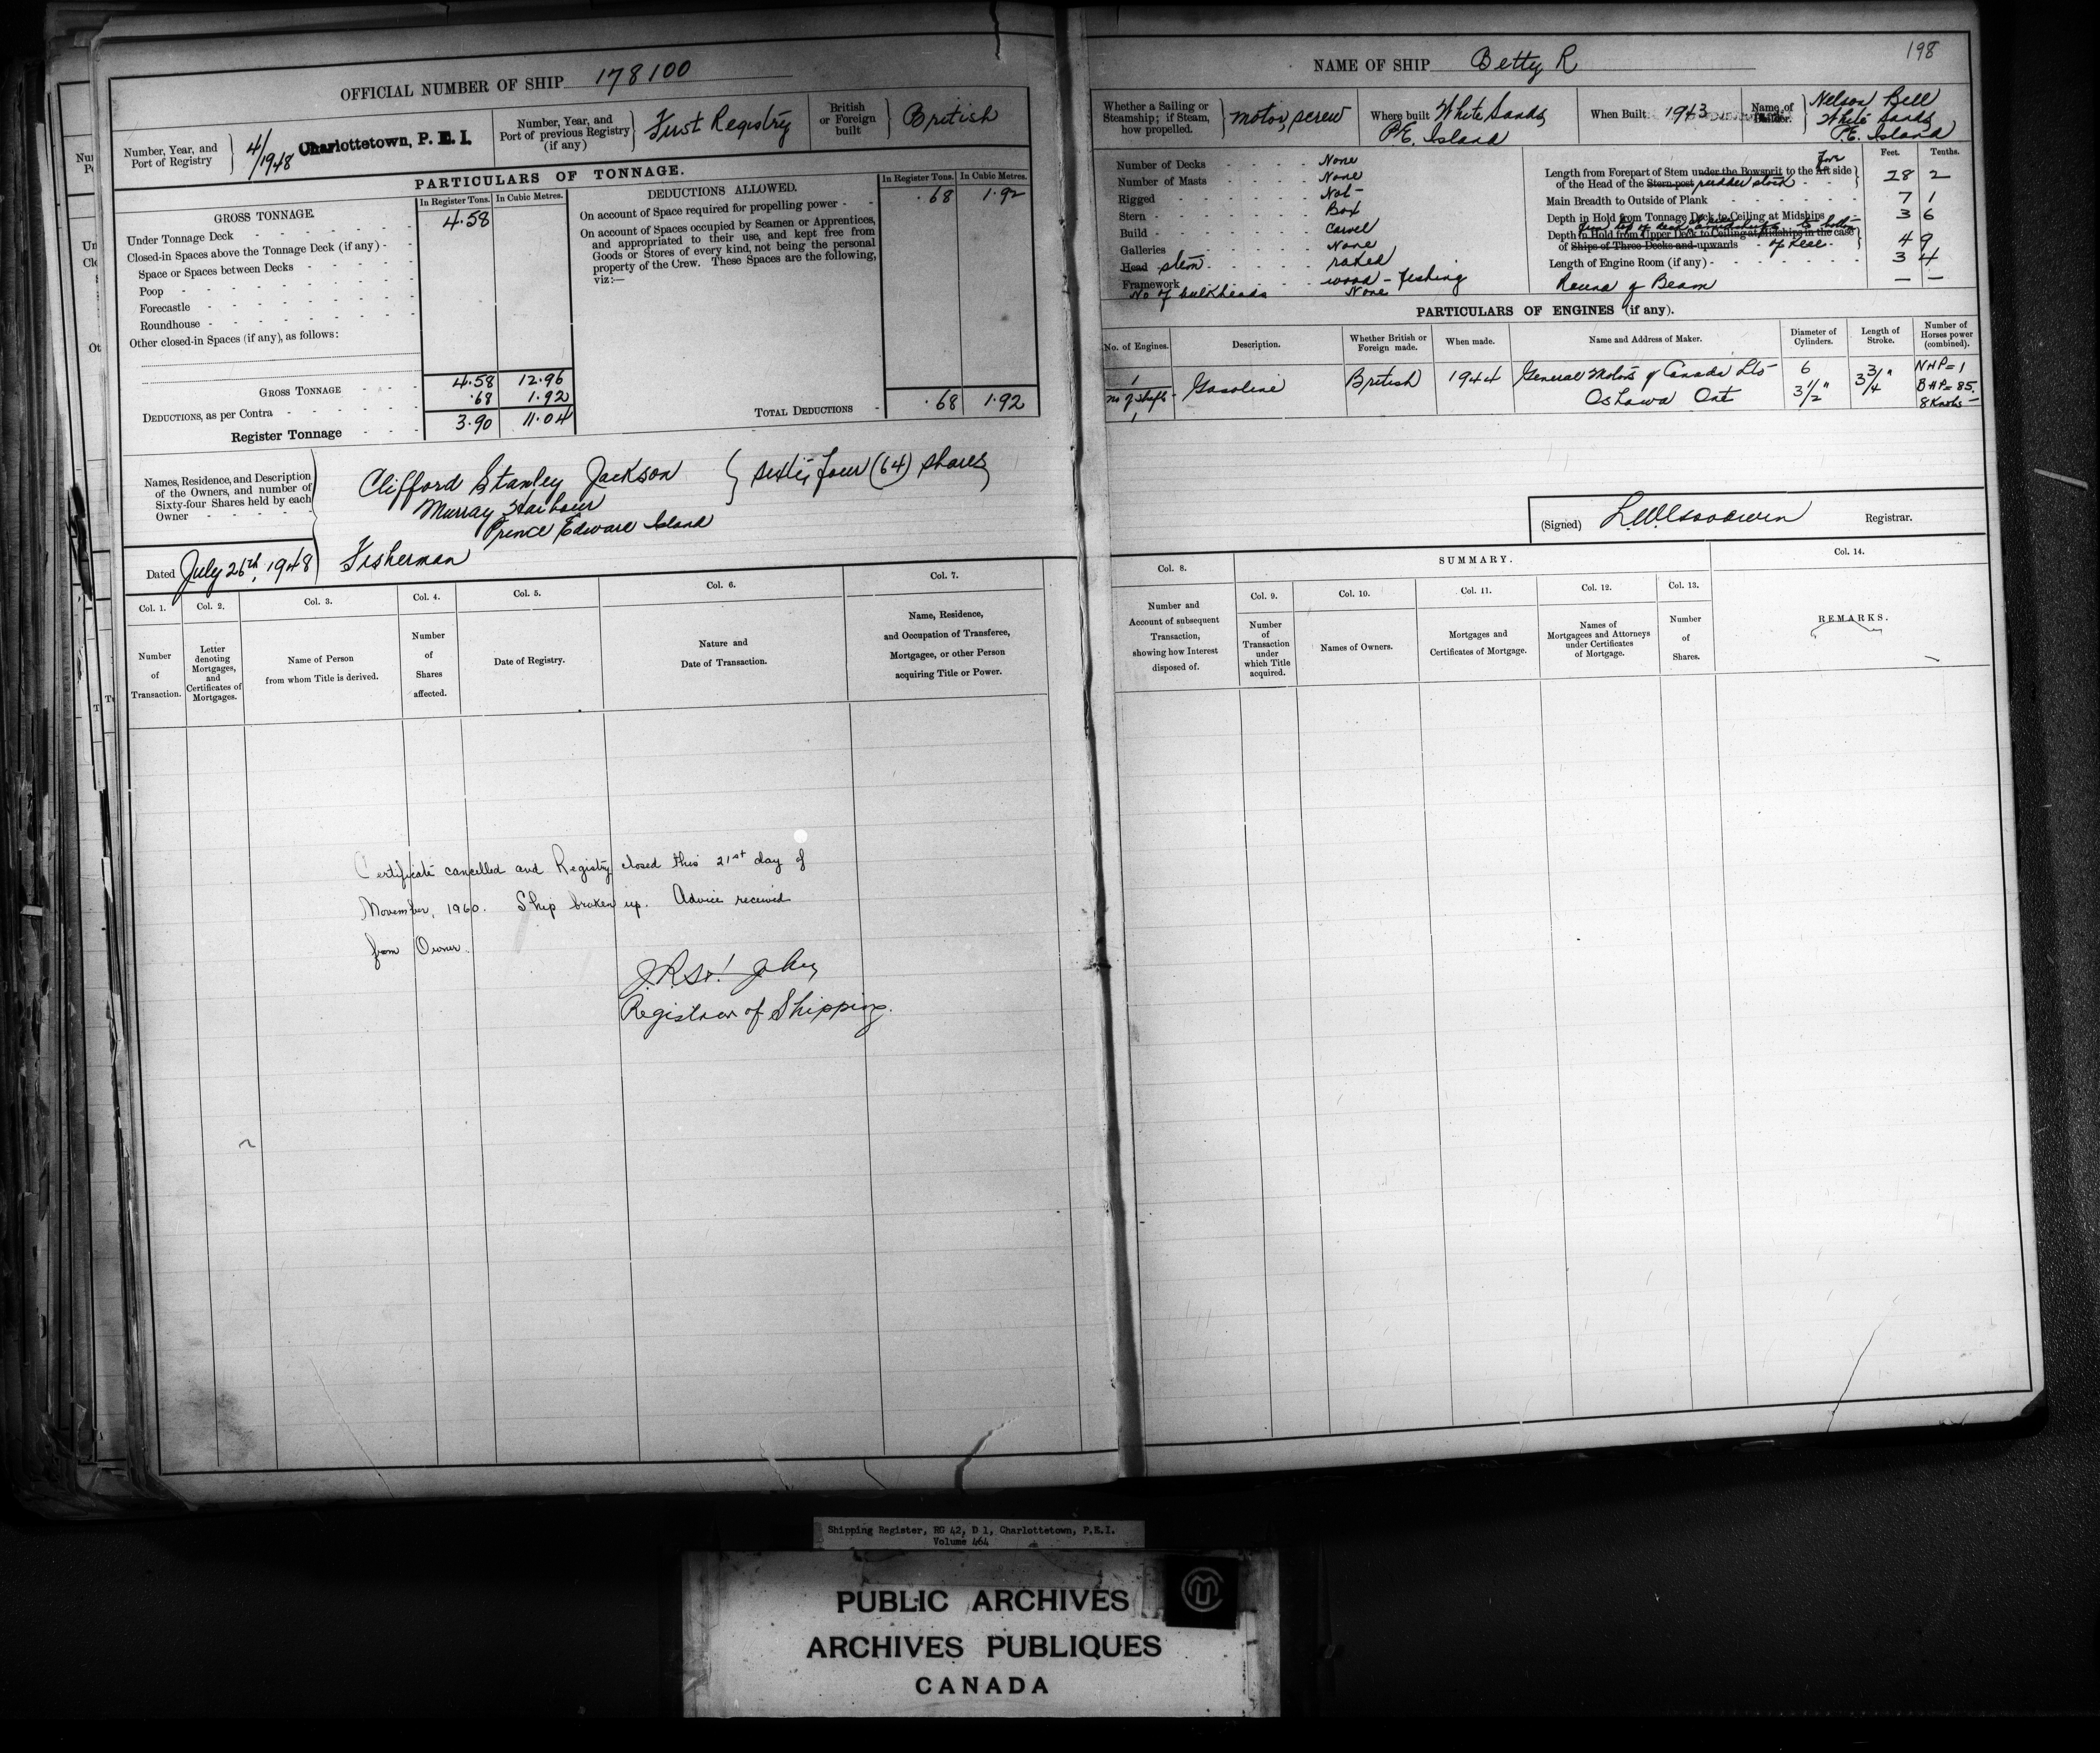 OFFICIAL NUMBER OF SHIP 178100
Number, Year, and
Port of Registry
4/1948
Charlottetown, P. E. I.
Number, Year, and
Port of previous Registry
(if any)
First Registry
British
or Foreign
built
British
PARTICULARS OF TONNAGE.
GROSS TONNAGE.
In Register Tons. In Cubic Metres.
Under Tonnage Deck - 4.58
Closed-in Spaces above the Tonnage Deck (if any) -
Space or Spaces between Decks -
Poop -
Forecastle -
Roundhouse -
Other closed-in Spaces (if any), as follows:
GROSS TONNAGE - 4.58 12.96
DEDUCTIONS, as per Contra - .68 1.92
Register Tonnage - 3.90 11.04
DEDUCTIONS ALLOWED.
In Register Tons. In Cubic Metres.
On account of Space required for propelling power - .68 1.92
On account of Spaces occupied by Seamen or Apprentices,
and appropriated to their use, and kept free from
Goods or Stores of every kind, not being the personal
property of the Crew. These Spaces are the following,
viz:—
TOTAL DEDUCTIONS - .68 1.92
Names, Residence, and Description
of the Owners, and number of
Sixty-four Shares held by each
Owner -
Clifford Stanley Jackson } sixty four (64) shares
Murray Harbour
Prince Edward Island
Fisherman
Dated July 26th, 1948
Col. 1. Col. 2. Col. 3. Col. 4. Col. 5. Col. 6. Col. 7.
Number
of
Transaction.
Letter
denoting
Mortgages,
and
Certificates of
Mortgages.
Name of Person
from whom Title is derived.
Number
of
Shares
affected.
Date of Registry.
Nature and
Date of Transaction.
Name, Residence,
and Occupation of Transferee,
Mortgagee, or other Person
acquiring Title or Power.
Certificate cancelled and Registry closed this 21st day of
November, 1960. Ship broken up. Advice received
from Owner.
Registrar of Shipping.
198
NAME OF SHIP Betty R
Whether a Sailing or
Steamship; if Steam,
how propelled.
motor, screw
Where built White Sands
P.E. Island
When Built 1943
Name of
Builder.
Nelson Bell
White Sands
P.E. Island
Number of Decks - None
Number of Masts - None
Rigged - Not
Stern - Box
Build - Carvel
Galleries - None
Head stem - raked
Framework - wood - fishing
No of bulkheads None
Feet. Tenths.
Length from Forepart of Stem under the Bowsprit to the Aft fore side
of the Head of the Stern-post rudder stock - 28 2
Main Breadth to Outside of Plank - 7 1
Depth in Hold from Tonnage Deck to Ceiling at Midships 3 6
Depth in Hold from Upper Deck to Ceiling at Midships in the case
of Ships of Three Decks and upwards of keel - 4 9
Length of Engine Room (if any) - 3 4
Round of Beam — —
PARTICULARS OF ENGINES (if any).
No. of Engines. Description. Whether British or
Foreign made. When made. Name and Address of Maker. Diameter of
Cylinders. Length of
Stroke. Number of
Horses power
(combined).
1
no of shafts -
1
Gasoline
British
1944
General Motors of Canada Ltd
Oshawa Ont
6
3 1/2"
3 3/4"
NHP = 1
BHP = 85
8 Knots
(Signed) L.W. Goodwin Registrar.
SUMMARY.
Col. 8. Col. 9. Col. 10. Col. 11. Col. 12. Col. 13. Col. 14.
Number and
Account of subsequent
Transaction,
showing how Interest
disposed of.
Number
of
Transaction
under
which Title
acquired.
Names of Owners.
Mortgages and
Certificates of Mortgage.
Names of
Mortgagees and Attorneys
under Certificates
of Mortgage.
Number
of
Shares.
REMARKS.
Shipping Register, RG 42, D 1, Charlottetown, P.E.I.
Volume 464
PUBLIC ARCHIVES
ARCHIVES PUBLIQUES
CANADA